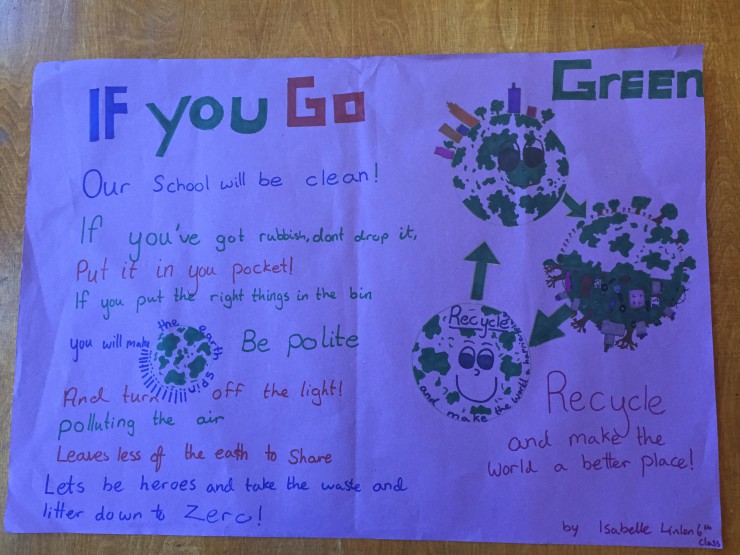 IF YOU GO GREEN
Our School will be clean!
If you've got rubbish, dont drop it,
Put it in you pocket!
If you put the right things in the bin
you will make the earth spin
Be polite
And turn off the light!
polluting the air
Leaves less of the eath to share
Lets be heroes and take the waste and
litter down to Zero!
Recycle
and make the world a happier
Recycle
and make the
World a better place!
by Isabelle Linlon 6th
class